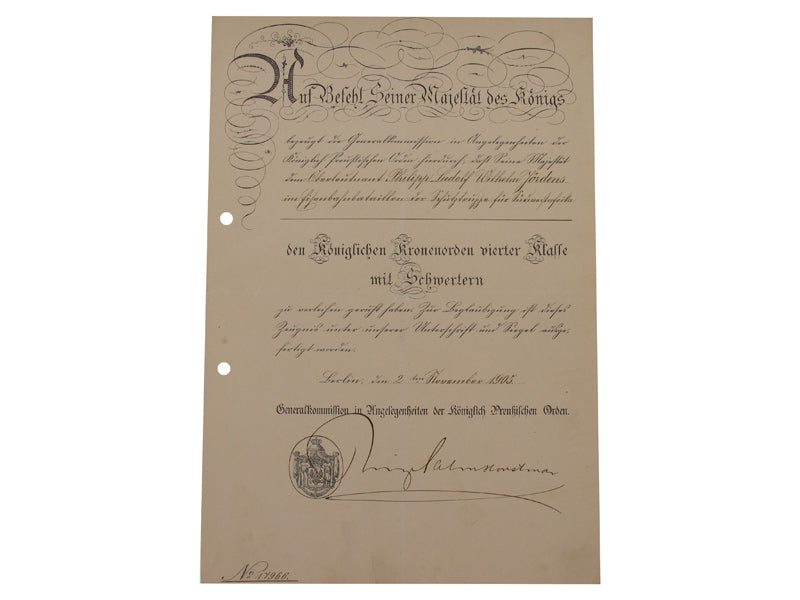 Auf Befehl Seiner Majestät des Königs
bezeugt die Generalkommission in Angelegenheiten der
Königlich Preußischen Orden hierdurch, daß Seine Majestät
dem Oberleutnant Philipp Ludolf Wilhelm Jördens
im Eisenbahnbataillon der Schutztruppe für Südwestafrika
den Königlichen Kronenorden vierter Klasse
mit Schwertern
zu verleihen geruht haben. Zur Beglaubigung ist dieses
Zeugnis unter unserer Unterschrift und Siegel ausge-
fertigt worden.
Berlin, den 2ten November 1905.
Generalkommission in Angelegenheiten der Königlich Preußischen Orden.
No 17966.